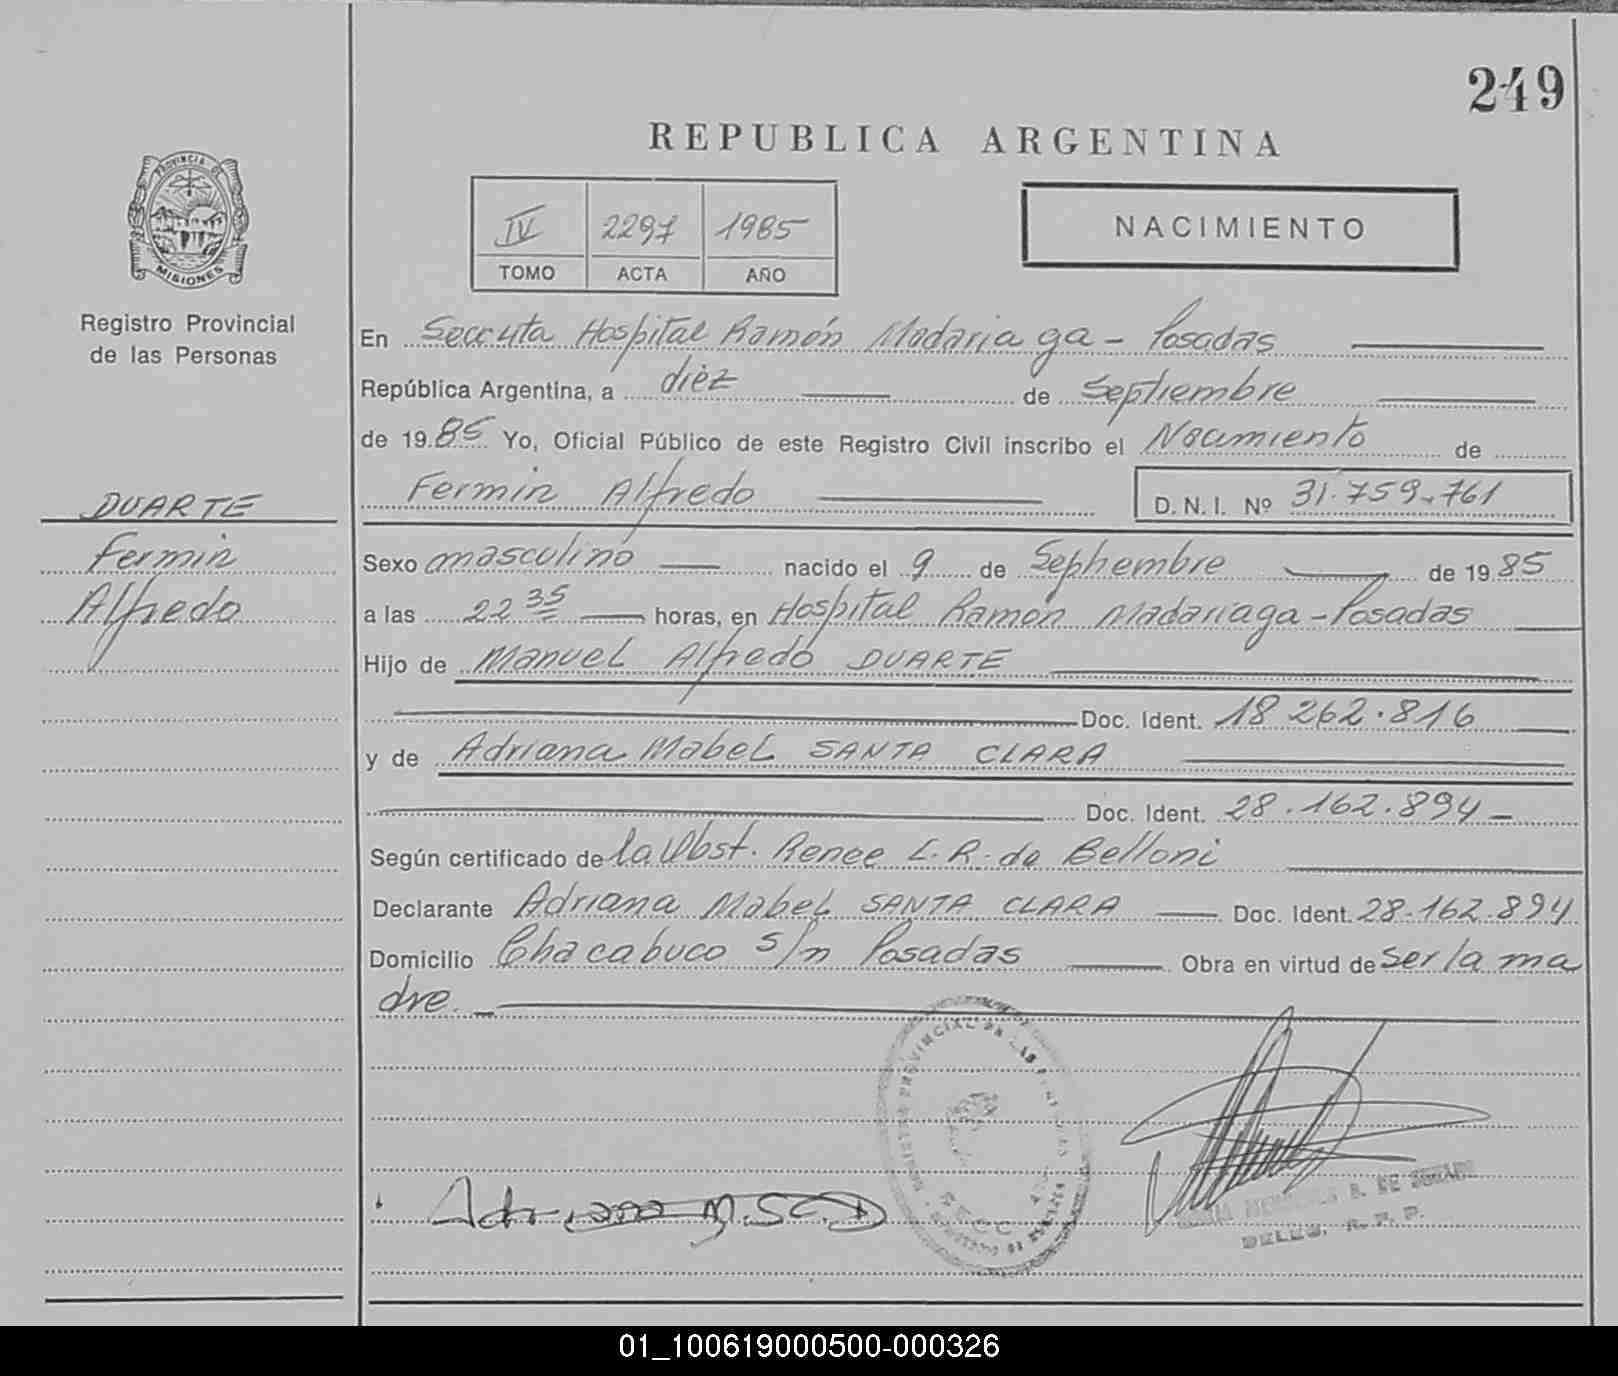 249
REPUBLICA ARGENTINA
PROVINCIA DE
MISIONES
IV 2297 1985
TOMO ACTA AÑO
NACIMIENTO
Registro Provincial
de las Personas
En Seccuta Hospital Ramón Madariaga - Posadas
República Argentina, a diez de Septiembre
de 1985 Yo, Oficial Público de este Registro Civil inscribo el Nacimiento de
Fermin Alfredo D. N. I. Nº 31.759.761
DUARTE
Fermin
Alfredo
Sexo masculino nacido el 9 de Septiembre de 1985
a las 22 35 horas, en Hospital Ramón Madariaga - Posadas
Hijo de Manuel Alfredo DUARTE
Doc. Ident. 18 262.816
y de Adriana Mabel SANTA CLARA
Doc. Ident. 28.162.894 -
Según certificado de la Obst. Renee L. R. de Belloni
Declarante Adriana Mabel SANTA CLARA Doc. Ident. 28.162.894
Domicilio Chacabuco s/n Posadas Obra en virtud de ser la ma
dre.
PROVINCIAL DE LAS
Adriana M.S.C.D
01_100619000500-000326